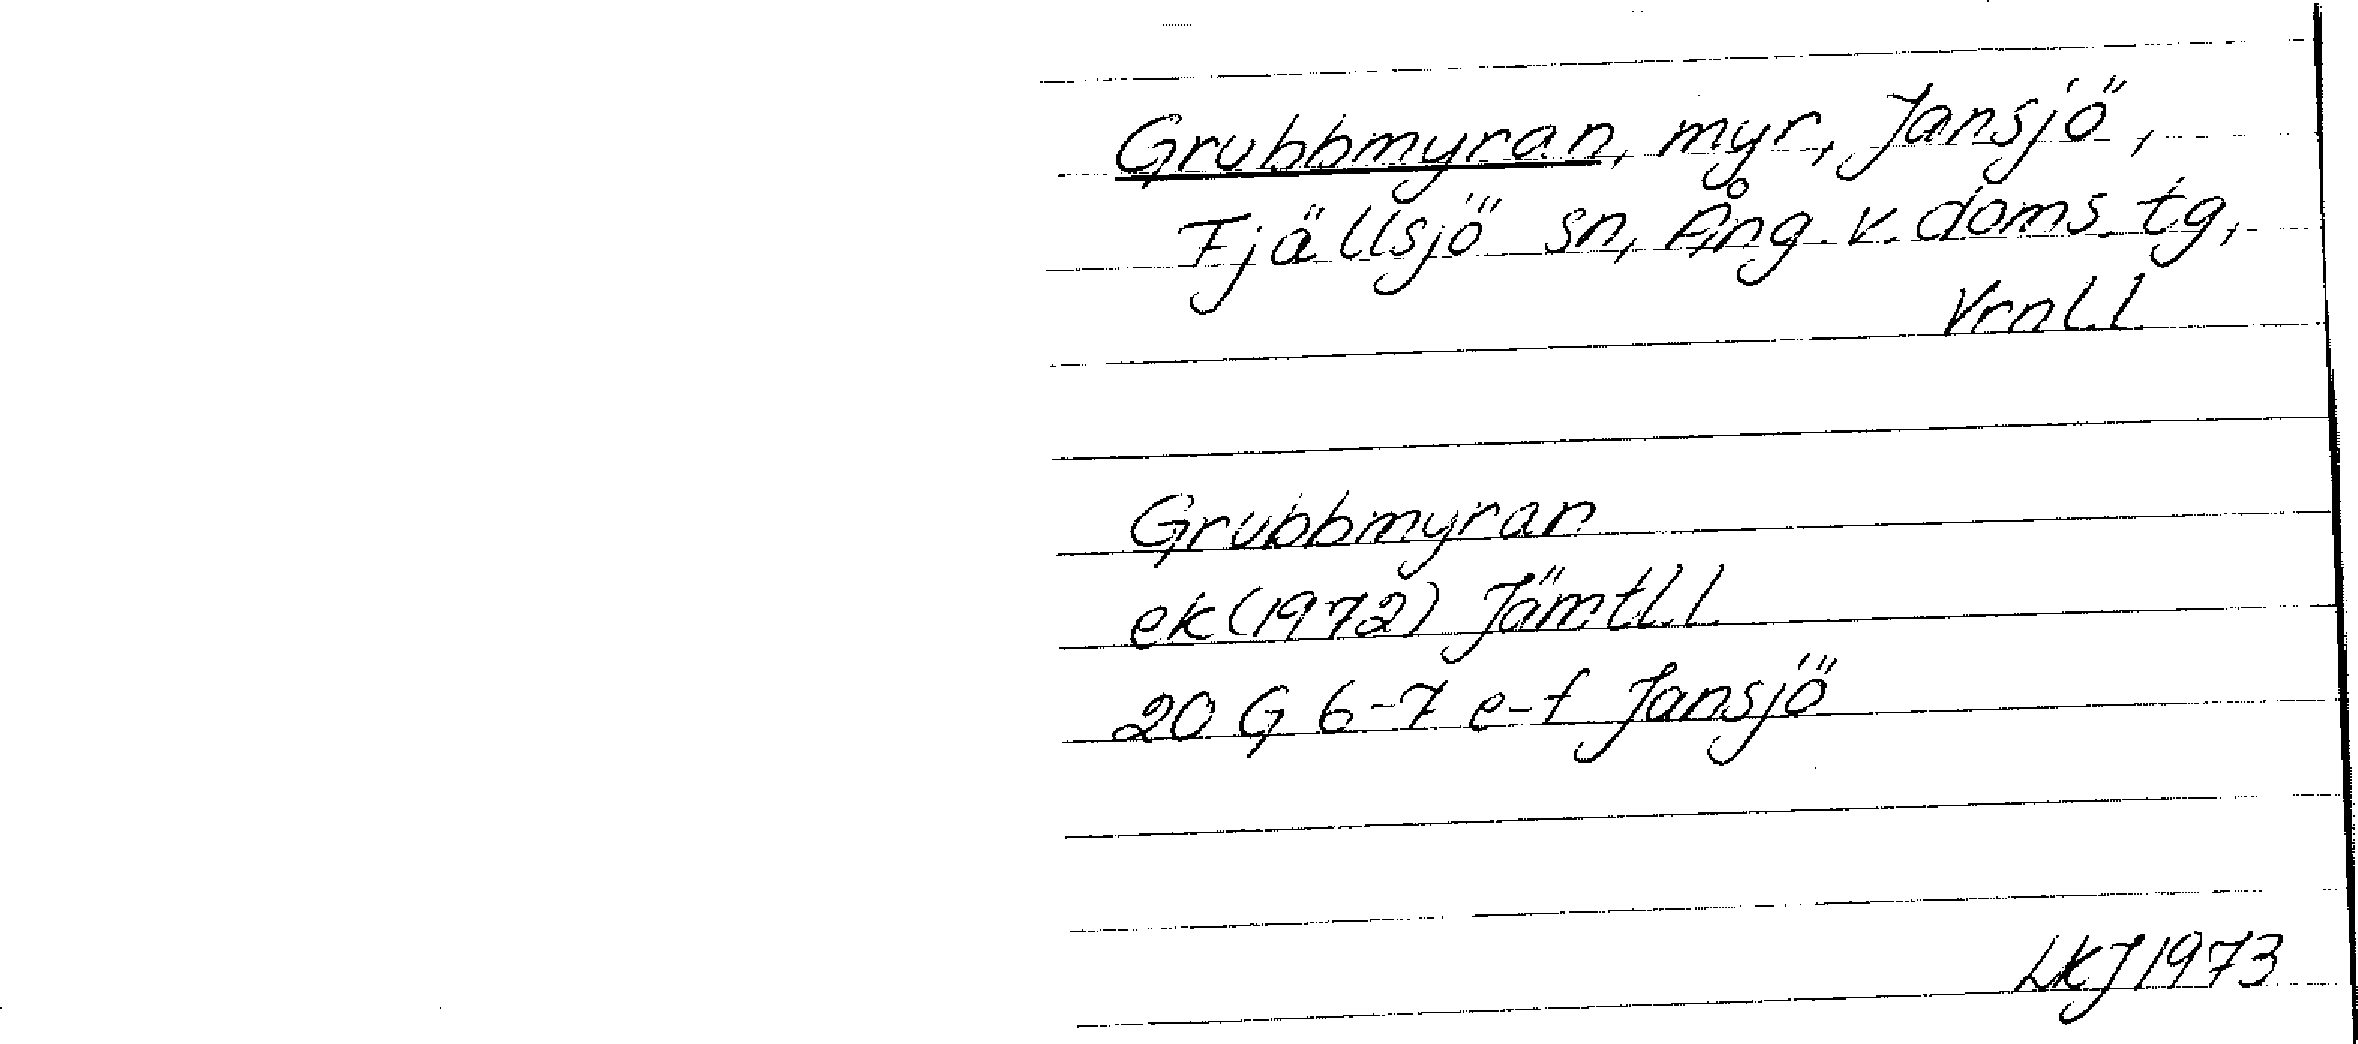 Grubbmyran, myr, Jansjö,
Fjällsjö sn, Ång. v. doms. tg,
Vrnl. l
Grubbmyran
ek (1972) Jämtl. l
20 G 6-7 e-f Jansjö
LKJ 1973